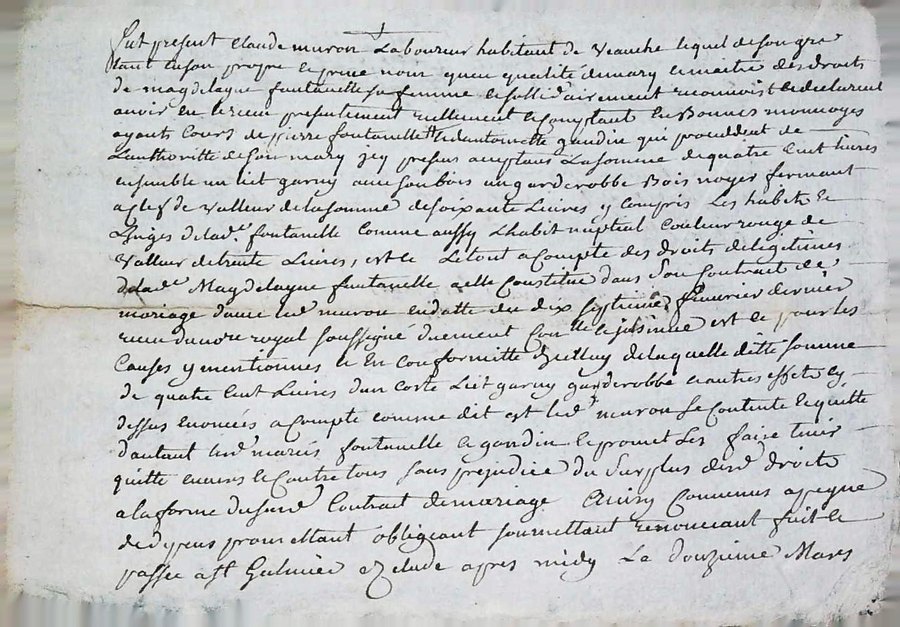 Fut present Claude muron Laboureur habitant de Veauche lequel de son gre
tant en son propre et prive nom qu'en qualité de mary et maitre des droits
de magdelayne fontanelle sa femme et sollidairement reconnoist et declare
avoir eu et receu presentement reellement et Comptant en Bonnes monnoyes
ayants Cours de pierre fontanelle et d'antoinette gandin qui proceddent de
L'authoritté de son mary jcy presens acceptans La somme de quatre Cent livres
ensemble un liet garny avec son bois un garderobbe Bois noyer fermant
a clef de valleur de la somme de soixante Livres y Compris Les habits et
Linges de lad.e fontanelle Comme aussy L'habit nuptial Couleur rouge de
valleur de trente Livres, et ce Le tout a Compte des droits de legitime
de lad.e Magdelayne fontanelle a elle Constitué dans son Contrait de
mariage d'avec led muron en datte du dix septieme fevrier dernier
receu du no.re royal soussigné duement et ce pour les
Causes y mentionnes et En Conformitté d'jcelluy de laquelle ditte somme
de quatre Cent Livres d'un Corté Liet garny garderobbe et autres effets cy
dessus enoncés a Compte comme dit est led.t muron se Contente et quitte
d'autant lesd mariés fontanelle et gandin et promet Les faire tenir
quitte envers et Contre tous sans prejudice du Surplus desd droits
a la forme dususd Contrait de mariage Ainsy Convenus a peyne
de dépens promettant obligeant soumettant renonceant fait et
passé a St Galmier Etude apres midy Le douzieme Mars